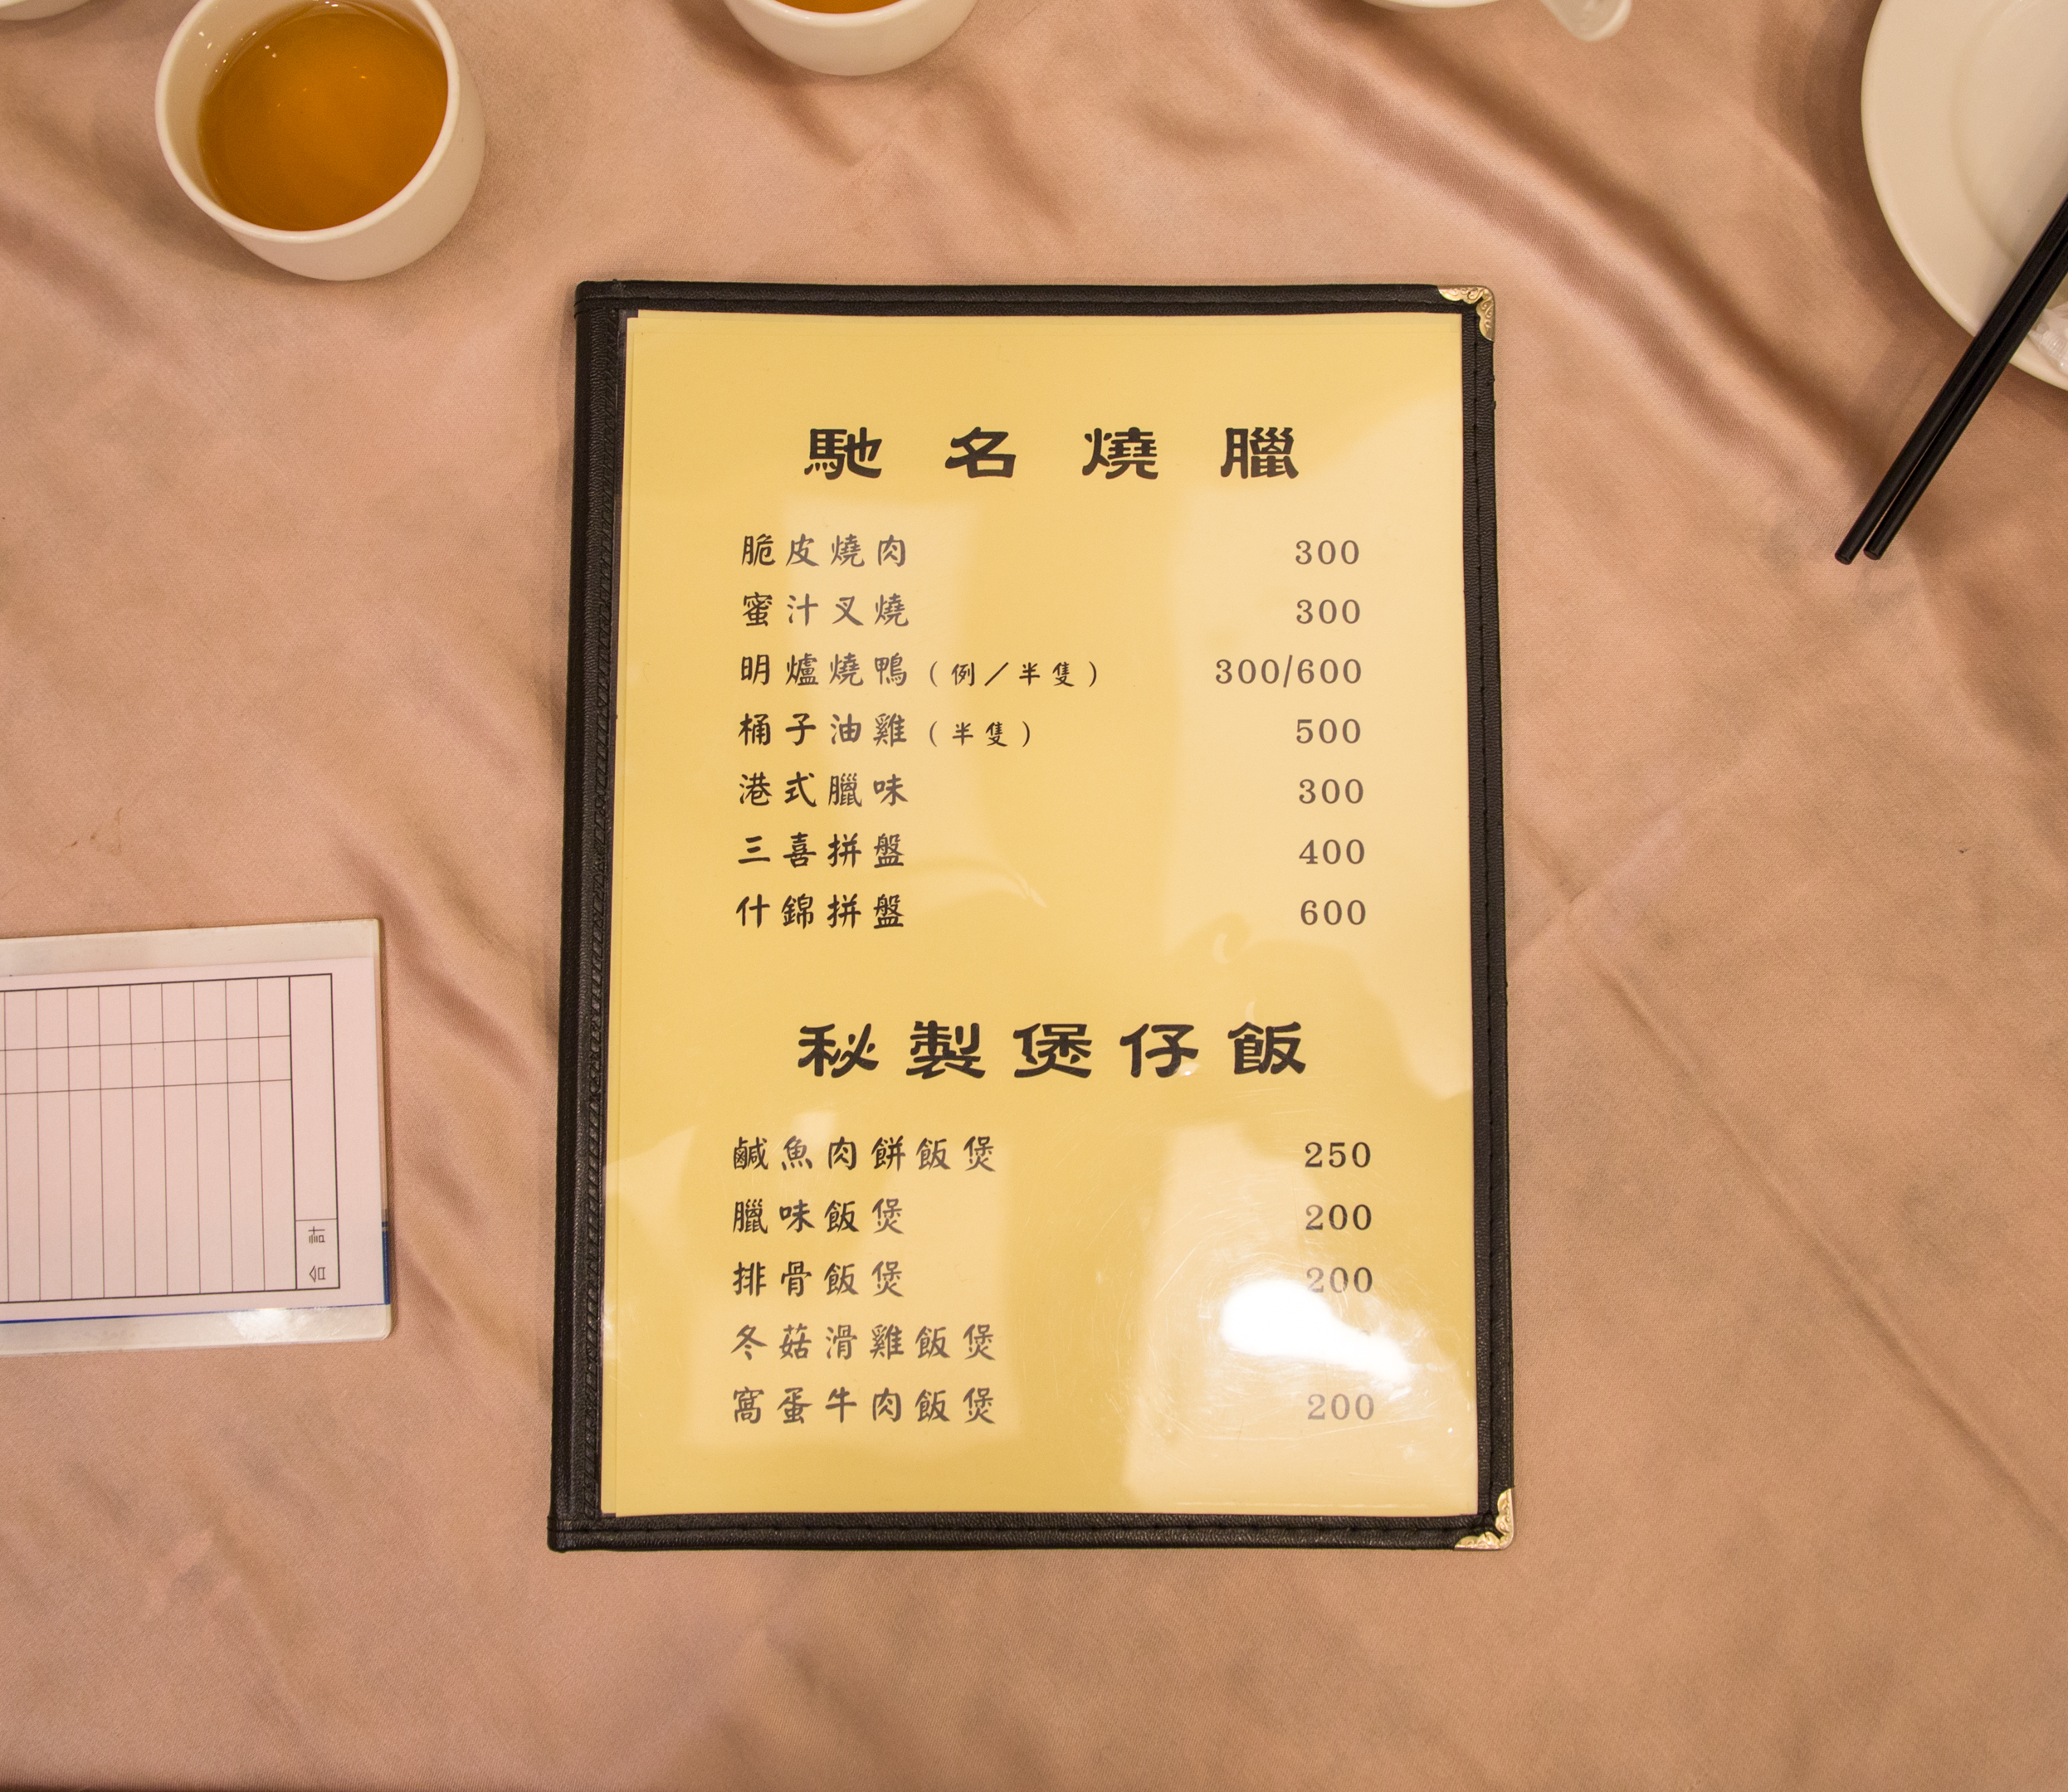 馳名燒臘
脆皮燒肉 300
蜜汁叉燒 300
明爐燒鴨(例/半隻) 300/600
桶子油雞(半隻) 500
港式臘味 300
三喜拼盤 400
什錦拼盤 600
秘製煲仔飯
鹹魚肉餅飯煲 250
臘味飯煲 200
排骨飯煲 200
冬菇滑雞飯煲
窩蛋牛肉飯煲 200